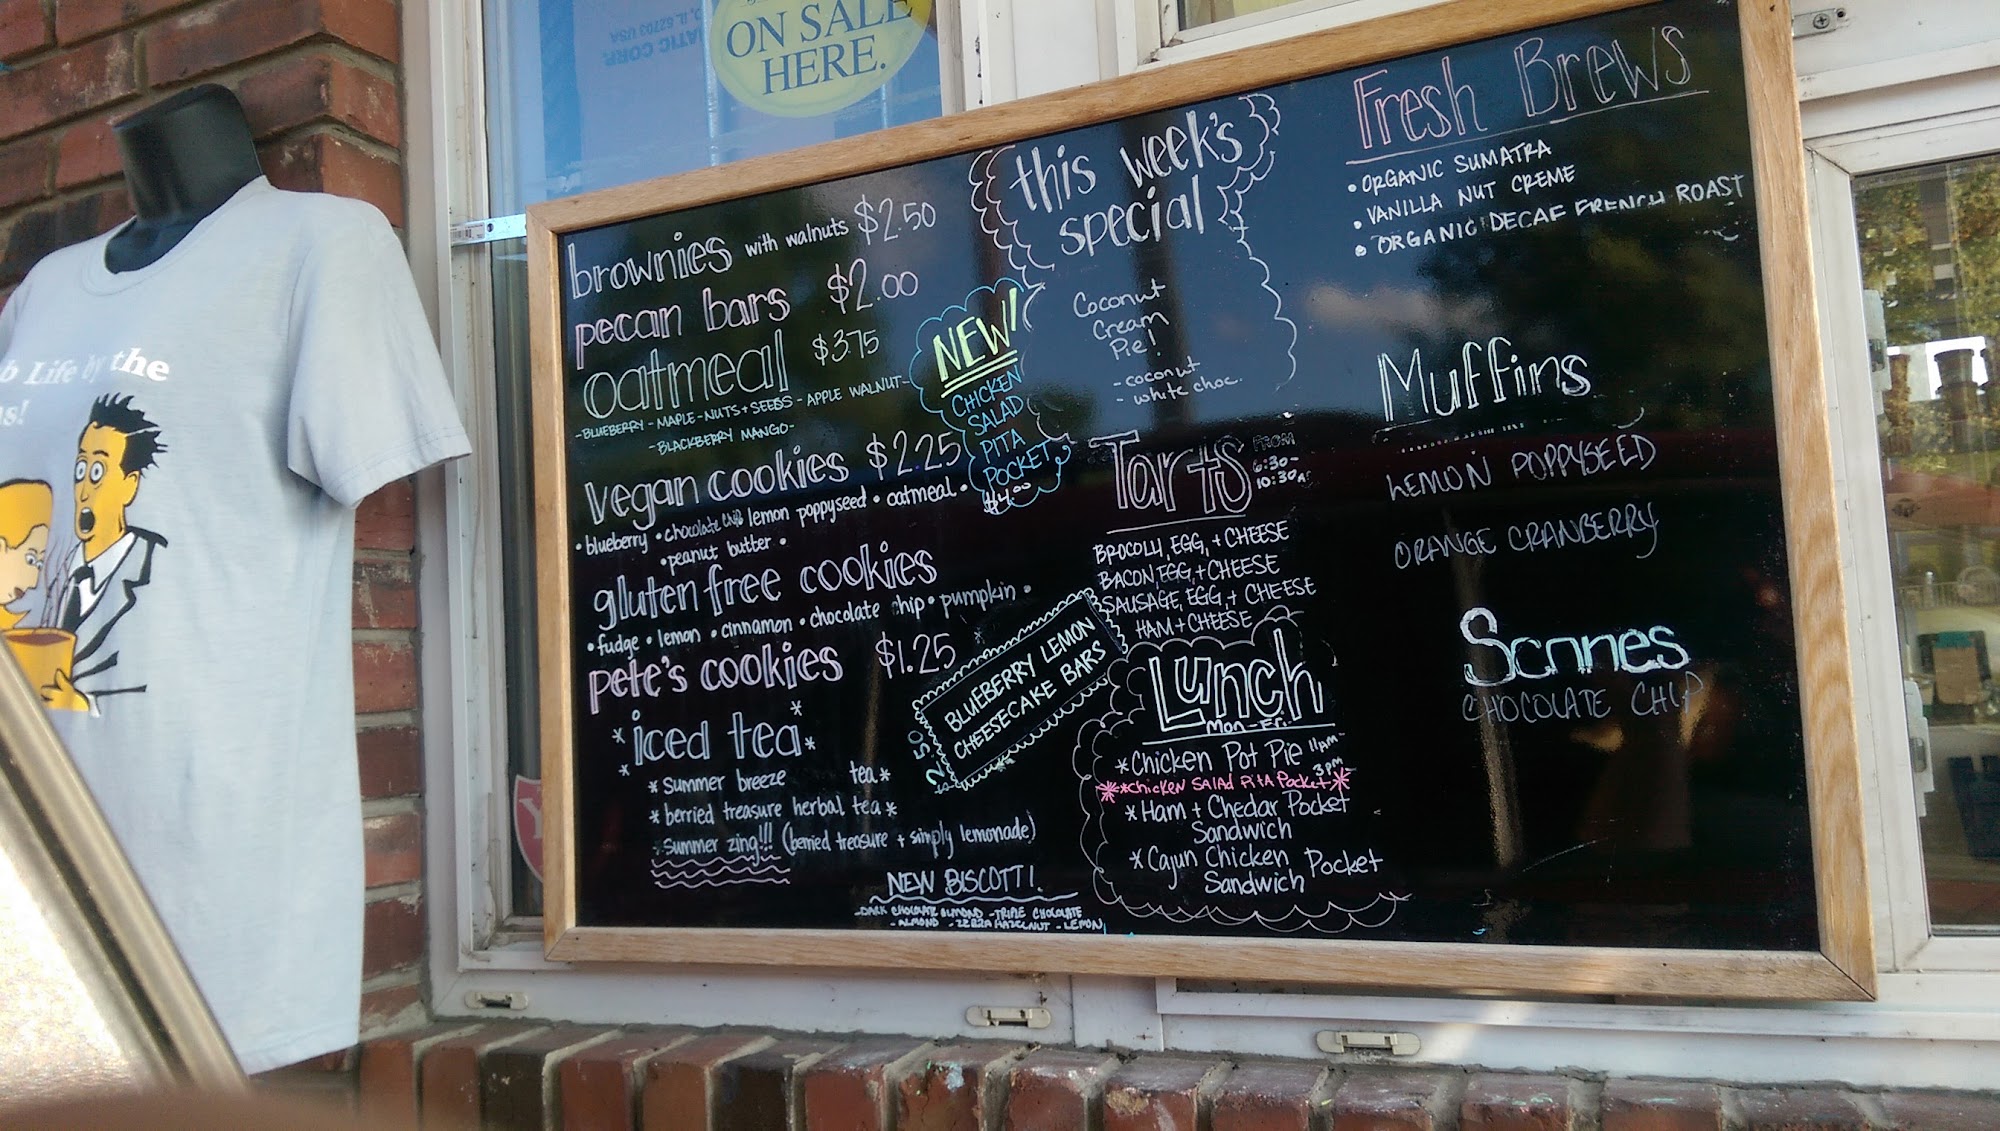 ON SALE
HERE.
MATIC CORP.
IL 62703 USA
b Life by the
s!
brownies with walnuts $2.50
pecan bars $2.00
oatmeal $3.75
-BLUEBERRY-MAPLE-NUTS+SEEDS-APPLE WALNUT-
-BLACKBERRY MANGO-
vegan cookies $2.25
•blueberry •chocolate chip lemon poppyseed • oatmeal •
•peanut butter •
gluten free cookies
•fudge • lemon • cinnamon • chocolate chip • pumpkin •
pete's cookies $1.25
*iced tea*
*summer breeze tea*
*berried treasure herbal tea*
summer zing!!! (berried treasure + simply lemonade)
NEW BISCOTTI.
-DARK CHOCOLATE ALMOND -TRIPLE CHOCOLATE
-ALMOND -ZEBRA HAZELNUT -LEMON
NEW!
CHICKEN
SALAD
PITA
POCKET
$4.00
BLUEBERRY LEMON
CHEESECAKE BARS
2.50
this week's
special
Coconut
Cream
Pie!
- coconut
- white choc.
Tarts
FROM
6:30-
10:30A
BROCOLLI, EGG, + CHEESE
BACON, EGG, + CHEESE
SAUSAGE, EGG, + CHEESE
HAM + CHEESE
Lunch
Mon-Fri.
11AM-
3PM
*Chicken Pot Pie
**Chicken Salad Pita Pocket*
*Ham + Chedar Pocket
Sandwich
*Cajun Chicken Pocket
Sandwich
Fresh Brews
•ORGANIC SUMATRA
•VANILLA NUT CREME
•ORGANIC DECAF FRENCH ROAST
Muffins
LEMON POPPYSEED
ORANGE CRANBERRY
Scones
CHOCOLATE CHIP